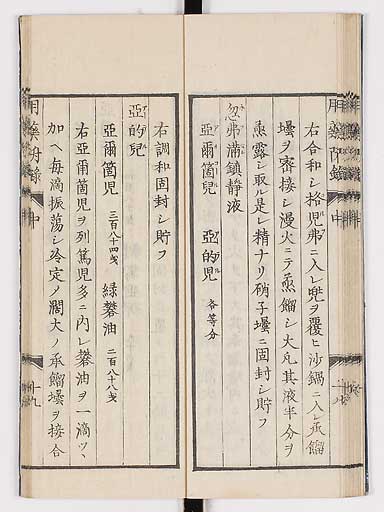 右合和シ格児弗ニ入レ兜ヲ覆ヒ沙鍋ニ入レ承餾
壜ヲ密接シ漫火ニテ蒸餾シ大凡其液半分ヲ
蒸露シ取ル是レ精ナリ硝子壜ニ固封シ貯フ
忽弗満鎮静液
亞爾箇兒 亞的兒 各等分
右調和固封シ貯フ
亞的兒
亞爾箇児 三百八十四戔 緑礬油 二百八十八戔
右亞爾箇児ヲ列篤児多ニ内レ礬油ヲ一滴ツヽ
加ヘ毎滴振蕩シ冷定ノ闊大ノ承餾壜ヲ接合
中
十九